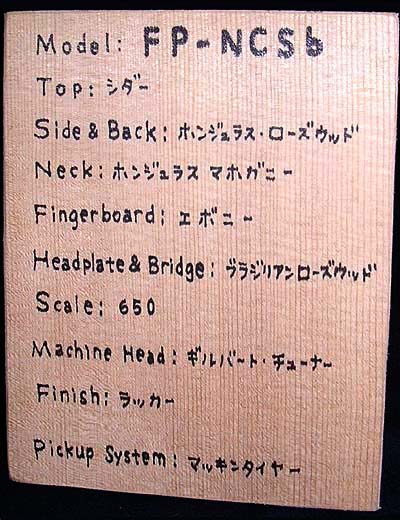 Model: FP-NCSb
Top: シダー
Side & Back: ホンジュラス・ローズウッド
Neck: ホンジュラス マホガニー
Fingerboard: エボニー
Headplate & Bridge: ブラジリアンローズウッド
Scale: 650
Machine Head: ギルバート・チューナー
Finish: ラッカー
Pickup System: マッキンタイヤー